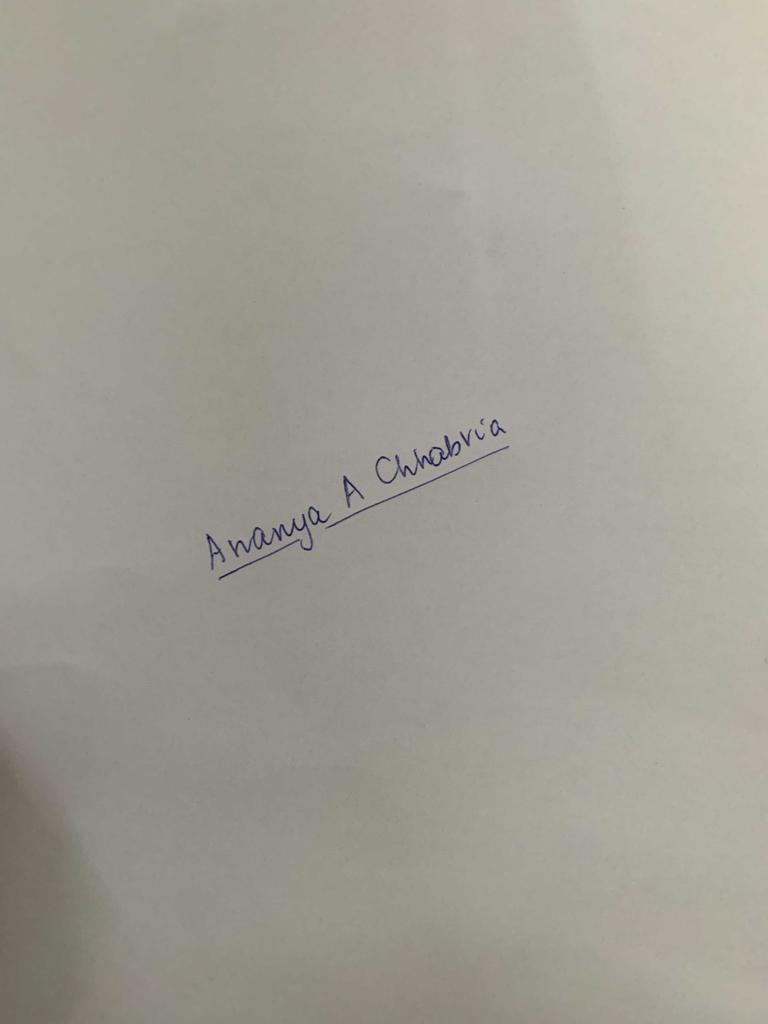 Ananya A Chhabria